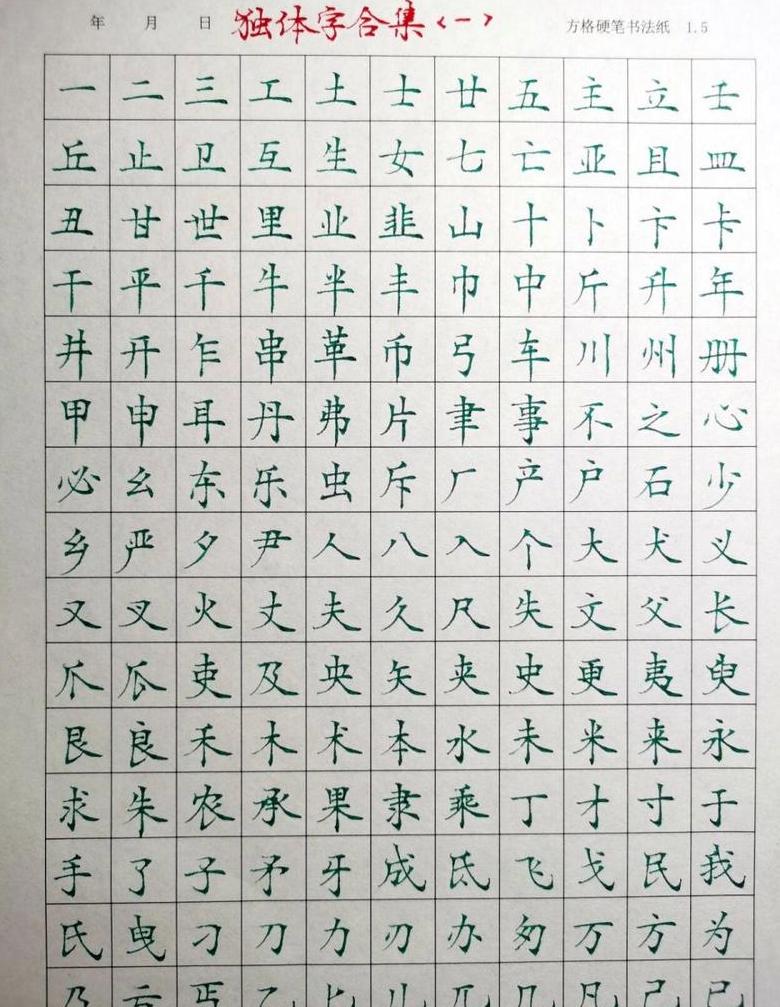 年 月 日 独体字合集(一) 方格硬笔书法纸 1.5
一二三工土士廿五主立壬
丘止卫互生女七亡亚且皿
丑甘世里业韭山十卜卞卡
干平千牛半丰巾中斤升年
井开乍串革币弓车川州册
甲申耳丹弗片聿事不之心
必幺东乐虫斥厂产户石少
乡严夕尹人八入个大犬义
又叉火丈夫久尺失文父长
爪瓜吏及央矢夹史更夷臾
艮良禾木术本水未米来永
求朱农承果隶乘丁才寸于
手了子矛牙成氐飞戈民我
氏曳刁刀力刃办匆万方为
乃丐乙匕儿兀几凡己已